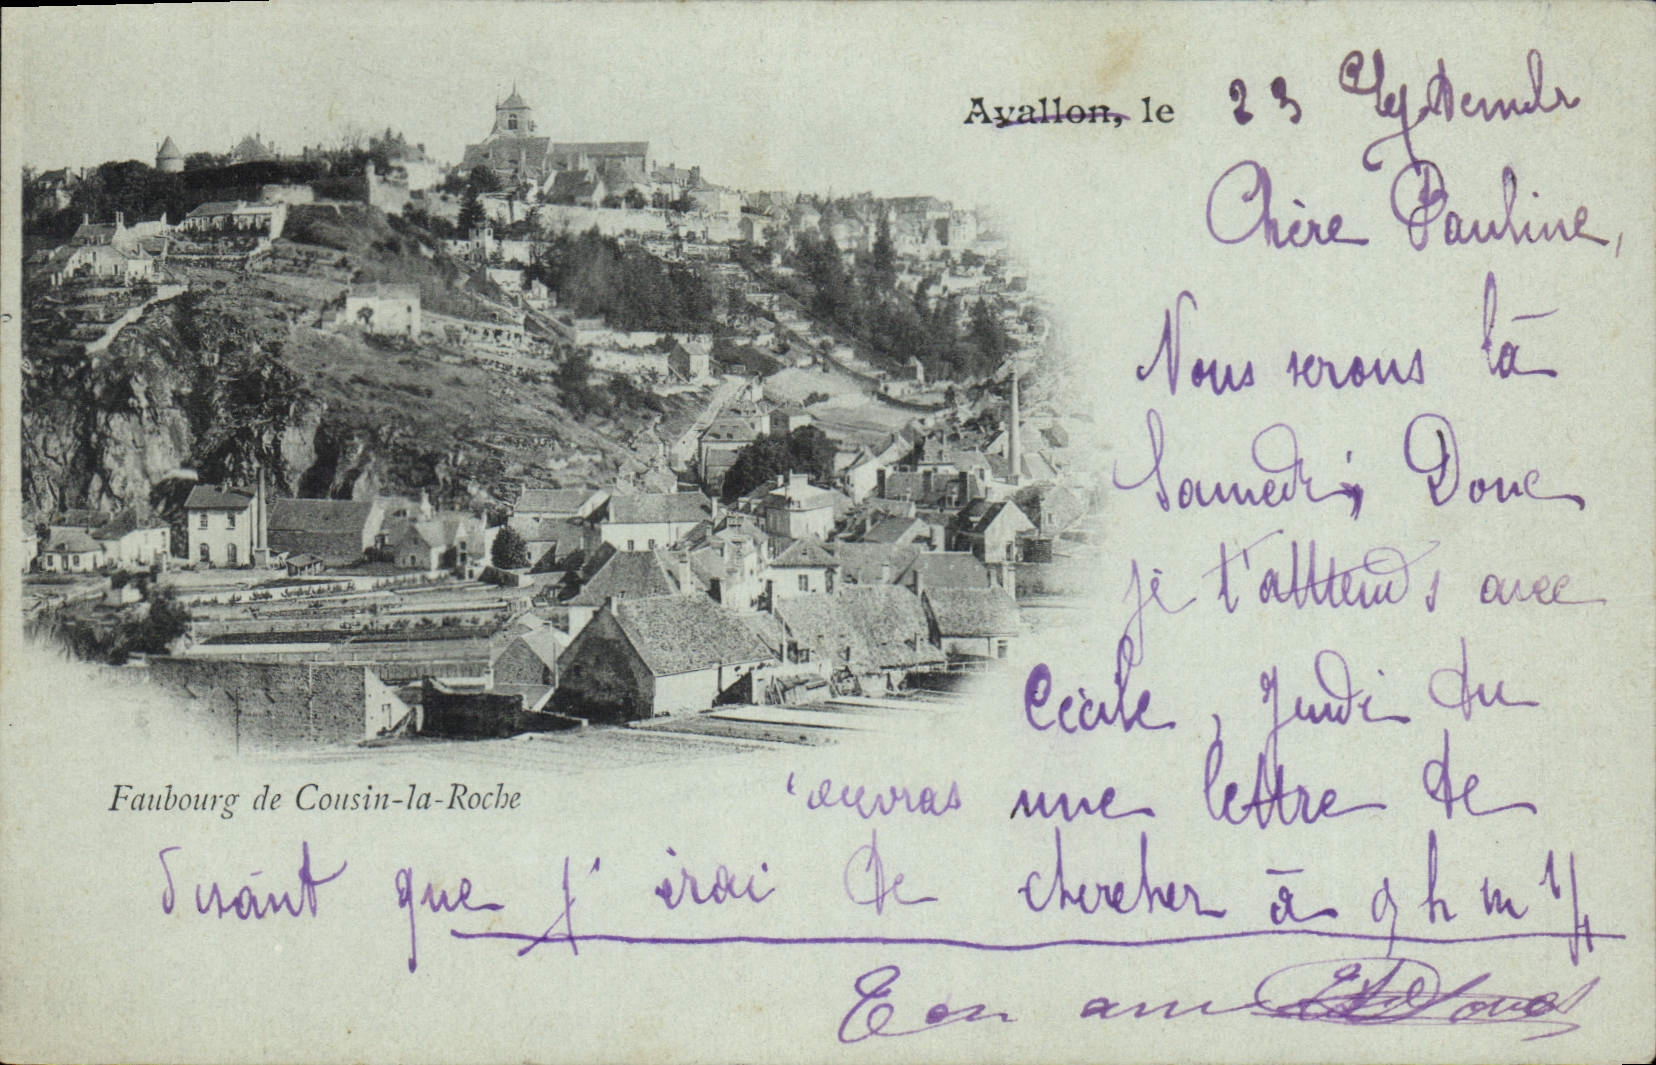 Avallon, le 23 Septembre
Chère Pauline,
Nous serons là
Samedi, Donc
je t'attends avec
Cécile, Jeudi du
une lettre de
Faubourg de Cousin-la-Roche
disant que j'irai te chercher à 9 h m 1/4
Ton ami